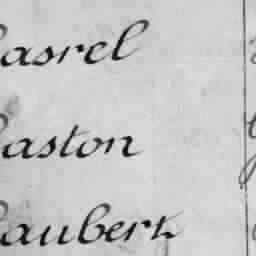 asrel
aston
aubert